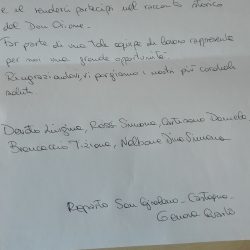 e ci renderà partecipi nel racconto storico
del Don Orione.
Far parte di una tale equipe di lavoro rappresenta
per noi una grande opportunità.
Ringraziandovi, vi porgiamo i nostri più cordiali
saluti.
Devoto Luigina, Rossi Simona, Daniela
Brancaccio Tiziana, Simona.
Reparto San Girolamo - Castagna
Genova Quarto